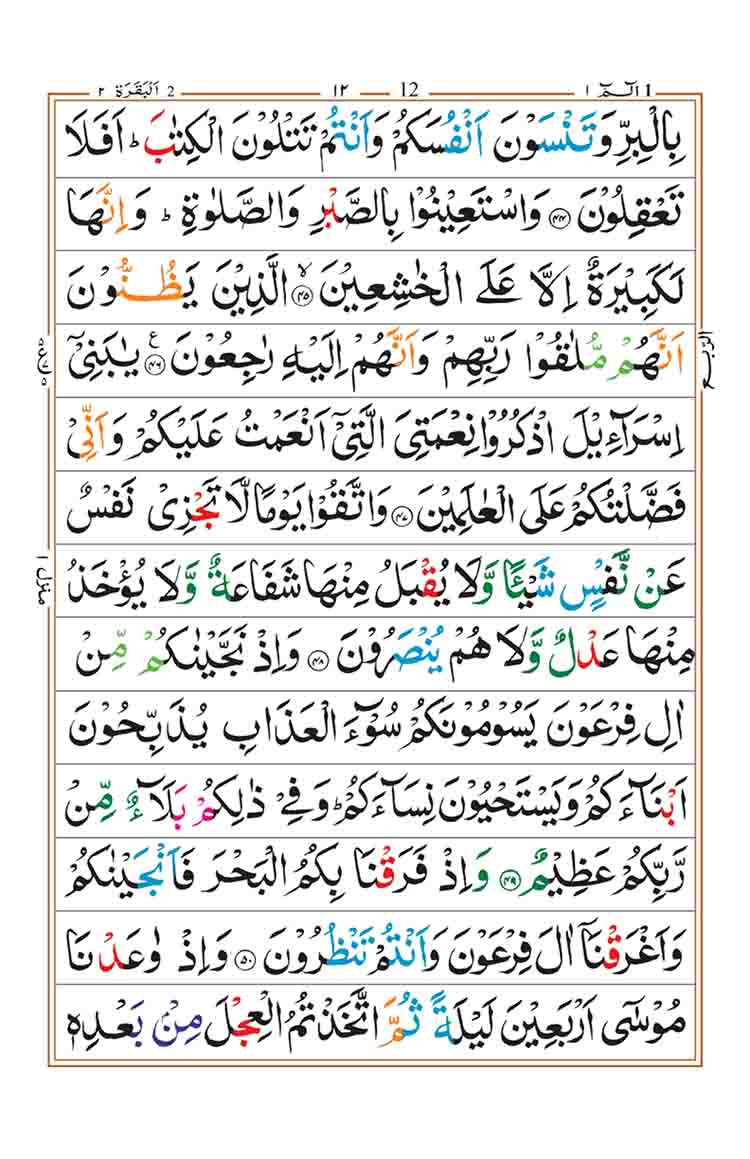 الٓمّٓ ۱ 1 12 ۱۲ اَلْبَقَرَة ۲ 2
بِالْبِرِّ وَ تَنْسَوْنَ اَنْفُسَكُمْ وَ اَنْتُمْ تَتْلُوْنَ الْكِتٰبَ ؕ اَفَلَا
تَعْقِلُوْنَ ﴿۴۴﴾ وَ اسْتَعِيْنُوْا بِالصَّبْرِ وَ الصَّلٰوةِ ؕ وَ اِنَّهَا
لَكَبِيْرَةٌ اِلَّا عَلَى الْخٰشِعِيْنَ ۙ﴿۴۵﴾ الَّذِيْنَ يَظُنُّوْنَ
اَنَّهُمْ مُّلٰقُوْا رَبِّهِمْ وَ اَنَّهُمْ اِلَيْهِ رٰجِعُوْنَ ﴿۴۶﴾ ع يٰبَنِيْٓ
اِسْرَآءِيْلَ اذْكُرُوْا نِعْمَتِيَ الَّتِيْٓ اَنْعَمْتُ عَلَيْكُمْ وَ اَنِّيْ
فَضَّلْتُكُمْ عَلَى الْعٰلَمِيْنَ ﴿۴۷﴾ وَ اتَّقُوْا يَوْمًا لَّا تَجْزِيْ نَفْسٌ
عَنْ نَّفْسٍ شَيْـًٔا وَّ لَا يُقْبَلُ مِنْهَا شَفَاعَةٌ وَّ لَا يُؤْخَذُ
مِنْهَا عَدْلٌ وَّ لَا هُمْ يُنْصَرُوْنَ ﴿۴۸﴾ وَ اِذْ نَجَّيْنٰكُمْ مِّنْ
اٰلِ فِرْعَوْنَ يَسُوْمُوْنَكُمْ سُوْٓءَ الْعَذَابِ يُذَبِّحُوْنَ
اَبْنَآءَكُمْ وَ يَسْتَحْيُوْنَ نِسَآءَكُمْ ؕ وَ فِيْ ذٰلِكُمْ بَلَآءٌ مِّنْ
رَّبِّكُمْ عَظِيْمٌ ﴿۴۹﴾ وَ اِذْ فَرَقْنَا بِكُمُ الْبَحْرَ فَاَنْجَيْنٰكُمْ
وَ اَغْرَقْنَآ اٰلَ فِرْعَوْنَ وَ اَنْتُمْ تَنْظُرُوْنَ ﴿۵۰﴾ وَ اِذْ وٰعَدْنَا
مُوْسٰٓى اَرْبَعِيْنَ لَيْلَةً ثُمَّ اتَّخَذْتُمُ الْعِجْلَ مِنْۢ بَعْدِهٖ
الرّبع
منزل ۱